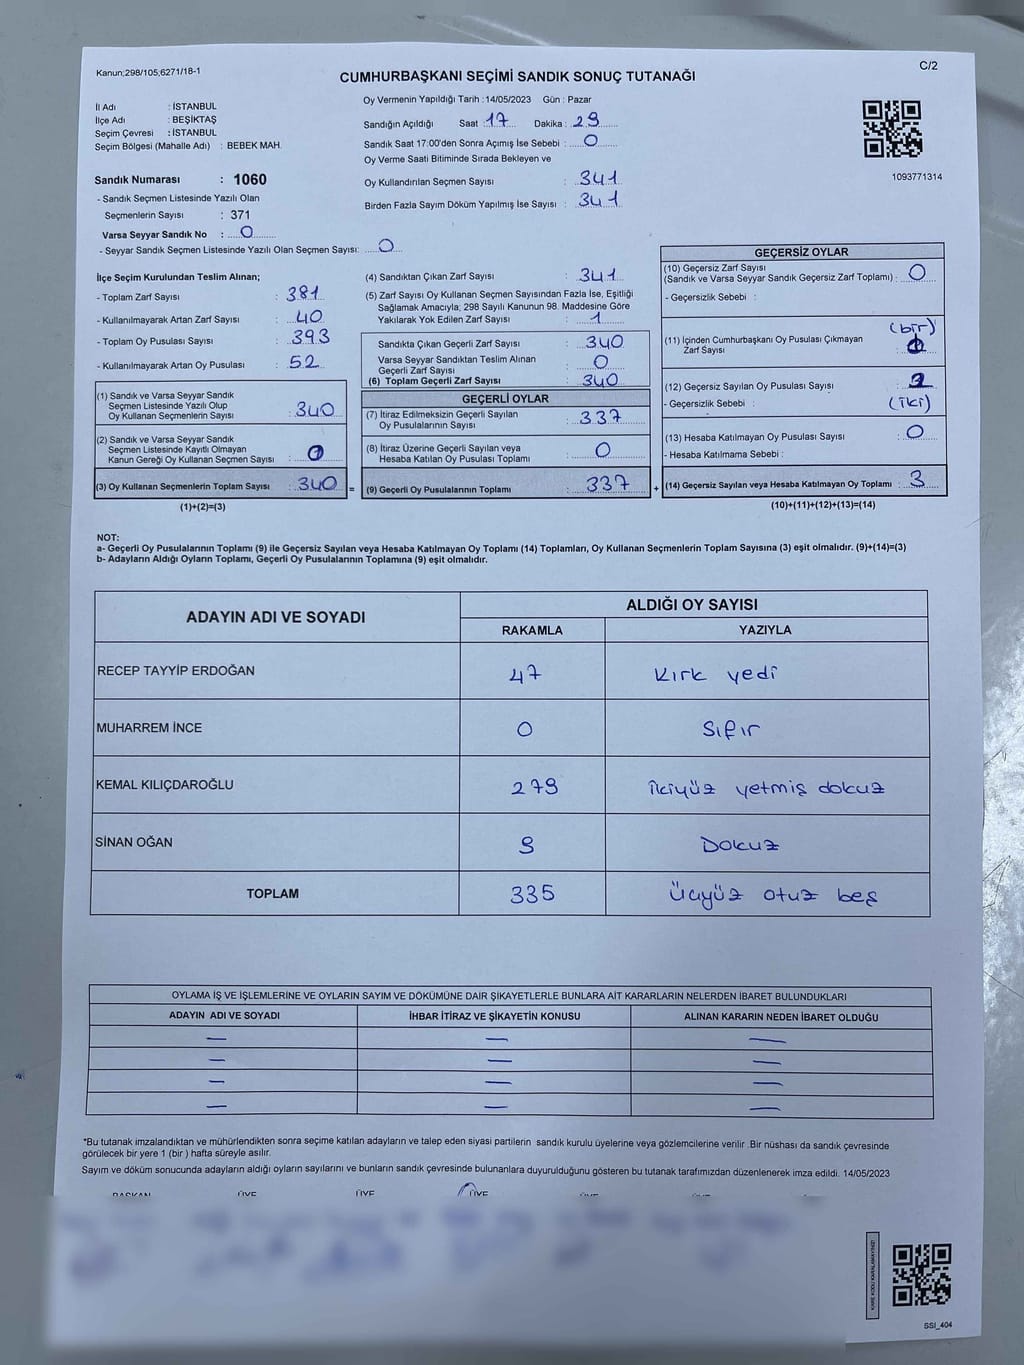 Kanun;298/105;6271/18-1
C/2
CUMHURBAŞKANI SEÇİMİ SANDIK SONUÇ TUTANAĞI
İl Adı : İSTANBUL
İlçe Adı : BEŞİKTAŞ
Seçim Çevresi : İSTANBUL
Seçim Bölgesi (Mahalle Adı) : BEBEK MAH.
Oy Vermenin Yapıldığı Tarih :14/05/2023 Gün : Pazar
Sandığın Açıldığı Saat : 17 Dakika : 29
Sandık Saat 17:00'den Sonra Açımış İse Sebebi : 0
Oy Verme Saati Bitiminde Sırada Bekleyen ve
Oy Kullandırılan Seçmen Sayısı : 341
Birden Fazla Sayım Döküm Yapılmış İse Sayısı : 341
1093771314
Sandık Numarası : 1060
- Sandık Seçmen Listesinde Yazılı Olan
Seçmenlerin Sayısı : 371
Varsa Seyyar Sandık No : 0
- Seyyar Sandık Seçmen Listesinde Yazılı Olan Seçmen Sayısı: 0
İlçe Seçim Kurulundan Teslim Alınan;
- Toplam Zarf Sayısı : 381
- Kullanılmayarak Artan Zarf Sayısı : 40
- Toplam Oy Pusulası Sayısı : 393
- Kullanılmayarak Artan Oy Pusulası : 52
(1) Sandık ve Varsa Seyyar Sandık
Seçmen Listesinde Yazılı Olup
Oy Kullanan Seçmenlerin Sayısı : 340
(2) Sandık ve Varsa Seyyar Sandık
Seçmen Listesinde Kayıtlı Olmayan
Kanun Gereği Oy Kullanan Seçmen Sayısı :
(3) Oy Kullanan Seçmenlerin Toplam Sayısı : 340 =
(1)+(2)=(3)
(4) Sandıktan Çıkan Zarf Sayısı : 341
(5) Zarf Sayısı Oy Kullanan Seçmen Sayısından Fazla İse, Eşitliği
Sağlamak Amacıyla; 298 Sayılı Kanunun 98. Maddesine Göre
Yakılarak Yok Edilen Zarf Sayısı : 1
Sandıkta Çıkan Geçerli Zarf Sayısı : 340
Varsa Seyyar Sandıktan Teslim Alınan
Geçerli Zarf Sayısı : 0
(6) Toplam Geçerli Zarf Sayısı : 340
GEÇERLİ OYLAR
(7) İtiraz Edilmeksizin Geçerli Sayılan
Oy Pusulalarının Sayısı : 337
(8) İtiraz Üzerine Geçerli Sayılan veya
Hesaba Katılan Oy Pusulası Toplamı : 0
(9) Geçerli Oy Pusulalarının Toplamı : 337 +
GEÇERSİZ OYLAR
(10) Geçersiz Zarf Sayısı
(Sandık ve Varsa Seyyar Sandık Geçersiz Zarf Toplamı) : 0
- Geçersizlik Sebebi :
(bir)
(11) İçinden Cumhurbaşkanı Oy Pusulası Çıkmayan
Zarf Sayısı :
(12) Geçersiz Sayılan Oy Pusulası Sayısı : 2
- Geçersizlik Sebebi : (iki)
(13) Hesaba Katılmayan Oy Pusulası Sayısı : 0
- Hesaba Katılmama Sebebi :
(14) Geçersiz Sayılan veya Hesaba Katılmayan Oy Toplamı : 3
(10)+(11)+(12)+(13)=(14)
NOT:
a- Geçerli Oy Pusulalarının Toplamı (9) ile Geçersiz Sayılan veya Hesaba Katılmayan Oy Toplamı (14) Toplamları, Oy Kullanan Seçmenlerin Toplam Sayısına (3) eşit olmalıdır. (9)+(14)=(3)
b- Adayların Aldığı Oyların Toplamı, Geçerli Oy Pusulalarının Toplamına (9) eşit olmalıdır.
ADAYIN ADI VE SOYADI
ALDIĞI OY SAYISI
RAKAMLA YAZIYLA
RECEP TAYYİP ERDOĞAN 47 Kırk yedi
MUHARREM İNCE 0 Sıfır
KEMAL KILIÇDAROĞLU 279 ikiyüz yetmiş dokuz
SİNAN OĞAN 9 Dokuz
TOPLAM 335 Üçyüz otuz beş
OYLAMA İŞ VE İŞLEMLERİNE VE OYLARIN SAYIM VE DÖKÜMÜNE DAİR ŞİKAYETLERLE BUNLARA AİT KARARLARIN NELERDEN İBARET BULUNDUKLARI
ADAYIN ADI VE SOYADI İHBAR İTİRAZ VE ŞİKAYETİN KONUSU ALINAN KARARIN NEDEN İBARET OLDUĞU
— — —
— — —
— — —
— — —
*Bu tutanak imzalandıktan ve mühürlendikten sonra seçime katılan adayların ve talep eden siyasi partilerin sandık kurulu üyelerine veya gözlemcilerine verilir .Bir nüshası da sandık çevresinde
görülecek bir yere 1 (bir ) hafta süreyle asılır.
Sayım ve döküm sonucunda adayların aldığı oyların sayılarını ve bunların sandık çevresinde bulunanlara duyurulduğunu gösteren bu tutanak tarafımızdan düzenlenerek imza edildi. 14/05/2023
BAŞKAN ÜYE ÜYE ÜYE ÜYE ÜYE
KARE KODU KARALAMAYINIZ!
SSI_404